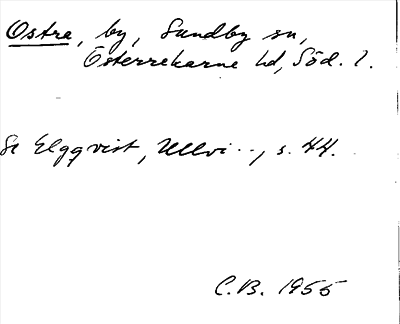 Ostra, by, Sundby sn,
Österrekarne hd, Söd. l.
Se Elgqvist, Ullvi..., s. 44.
C.B. 1955